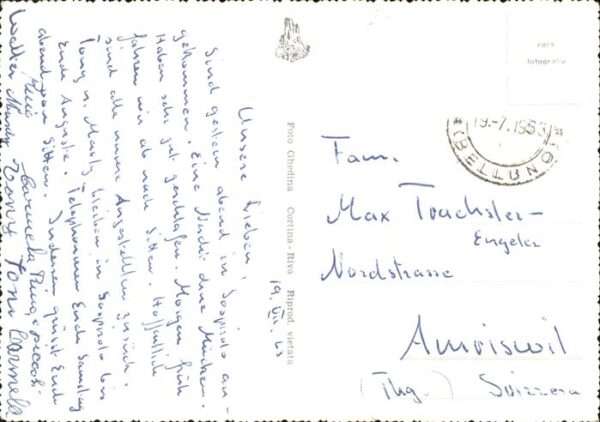 19. VII. 63
Unsere Lieben!
Sind gestern abend in Sospirolo an-
gekommen. Eine Nacht ohne Mücken.
Haben sehr gut geschlafen. Morgen früh
fahren wir ab nach Sitten. Hoffentlich
sind alle unsere Angestellten zurück.
Tony u. Marly bleiben in Sospirolo bis
Ende Auguste. Telephonieren Euch Samstag
abend von Sitten. Indessen grüsst Euch
Walter Mandy Tony Toni Carmela
Foto Ghedina Cortina - Riva Riprod. vietata
vera
fotografia
19.-7.1963
* (BELLUNO) *
Fam.
Max Trachsler-
Engeler
Nordstrasse
Amriswil
(Thg.) Svizzera